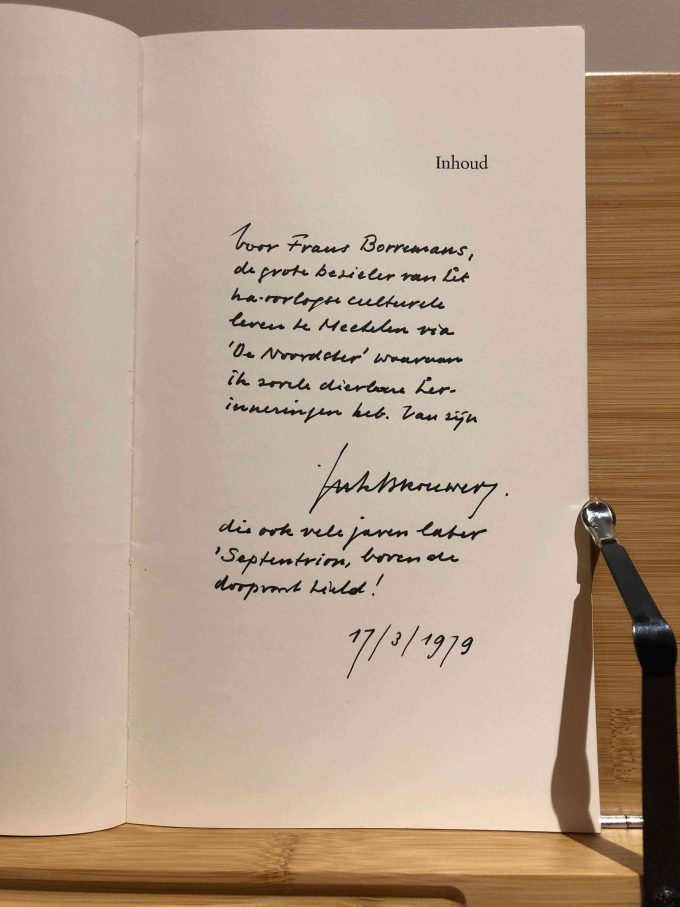 Inhoud
Voor Frans Borremans,
de grote bezieler van het
na-oorlogse culturele
leven te Mechelen via
'De Noordster' waarvan
ik zovele dierbare her-
inneringen heb. Van zijn
Jan Brouwers.
die ook vele jaren later
'Septentrion, boven de
doopvont hield!
17/3/1979